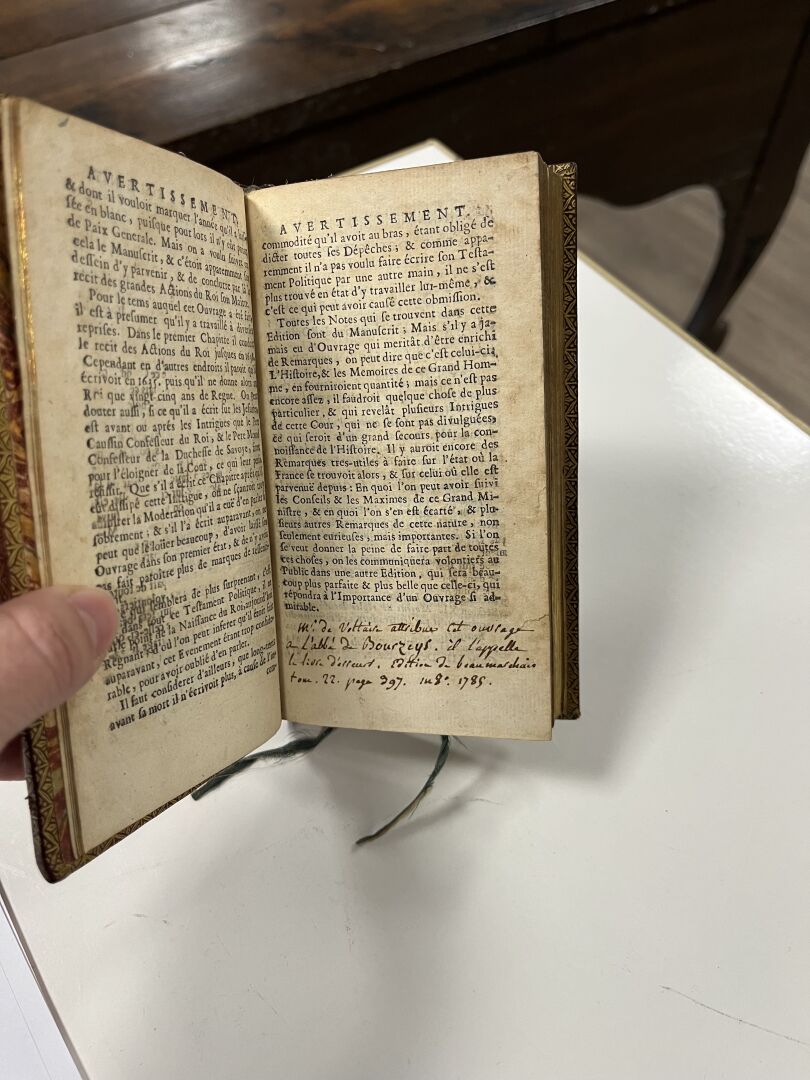 AVERTISSEMENT.
& dont il vouloit marquer l'année qu'il a
sée en blanc, puisque pour lors il n'y eût point
de Paix Generale. Mais on a voulu suivre en
cela le Manuscrit, & c'étoit apparemment son
dessein d'y parvenir, & de conclurre par là le
recit des grandes Actions du Roi son Maître.
Pour le tems auquel cet Ouvrage a été fait,
il est à présumer qu'il y a travaillé à diverses
reprises. Dans le premier Chapitre il conduit
le recit des Actions du Roi jusques en
Cependant en d'autres endroits il paroît qu'il
écrivoit en 1635. puis qu'il ne donne alors au
Roi que vingt-cinq ans de Regne. On peut
douter aussi, si ce qu'il a écrit sur les Jesuites,
est avant ou après les Intrigues que le Pere
Caussin Confesseur du Roi, & le Pere
Confesseur de la Duchesse de Savoye, firent
pour l'éloigner de la Cour, ce qui leur pensa
réussir. Que s'il a écrit ce Chapitre après qu'il
eut dissipé cette Intrigue, on ne sçauroit trop
admirer la Moderation qu'il a euë d'en parler si
sobrement; & s'il l'a écrit auparavant, on ne
peut que le loüer beaucoup, d'avoir laissé son
Ouvrage dans son premier état, & de n'y avoir
pas fait paroître plus de marques de ressenti-
semblera de plus surprenant, c'est
tout ce Testament Politique, il ne
parle de la Naissance du Roi,
Regnant, d'où l'on peut inférer qu'il étoit fait
auparavant, cet Evenement étant trop considé-
rable, pour avoir oublié d'en parler.
Il faut considerer d'ailleurs, que long-tems
avant sa mort il n'écrivoit plus, à cause de l'in-
com-
AVERTISSEMENT.
commodité qu'il avoit au bras, étant obligé de
dicter toutes ses Dépêches; & comme appa-
remment il n'a pas voulu faire écrire son Testa-
ment Politique par une autre main, il ne s'est
plus trouvé en état d'y travailler lui-même, &
c'est ce qui peut avoir causé cette obmission.
Toutes les Notes qui se trouvent dans cette
Edition sont du Manuscrit; Mais s'il y a ja-
mais eu d'Ouvrage qui meritât d'être enrichi
de Remarques, on peut dire que c'est celui-ci.
L'Histoire, & les Memoires de ce Grand Hom-
me, en fourniroient quantité; mais ce n'est pas
encore assez, il faudroit quelque chose de plus
particulier, & qui revelât plusieurs Intrigues
de cette Cour, qui ne se sont pas divulguées,
ce qui seroit d'un grand secours pour la con-
noissance de l'Histoire. Il y auroit encore des
Remarques tres-utiles à faire sur l'état où la
France se trouvoit alors, & sur celui où elle est
parvenuë depuis: En quoi l'on peut avoir suivi
les Conseils & les Maximes de ce Grand Mi-
nistre, & en quoi l'on s'en est écarté, & plu-
sieurs autres Remarques de cette nature, non
seulement curieuses, mais importantes. Si l'on
se veut donner la peine de faire part de toutes
ces choses, on les communiquera volontiers au
Public dans une autre Edition, qui sera beau-
coup plus parfaite & plus belle que celle-ci, qui
répondra à l'Importance d'un Ouvrage si ad-
mirable.
Mr. de Voltaire attribue cet ouvrage
a L'abbé de Bourzeys. il l'appelle
le livre d'erreurs. Edition de beaumarchais
tom. 22. page 397. in 8º. 1785.